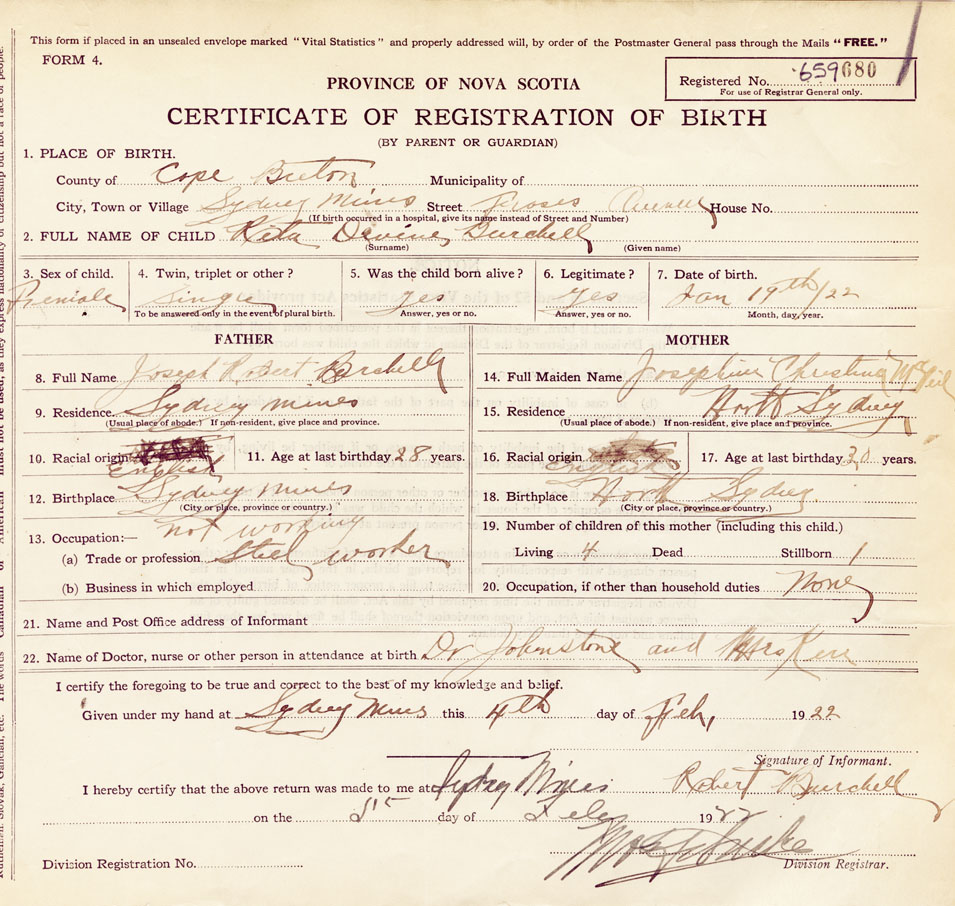 This form if placed in an unsealed envelope marked "Vital Statistics" and properly addressed will, by order of the Postmaster General pass through the Mails "FREE."
FORM 4.
Registered No. 659680
For use of Registrar General only.
PROVINCE OF NOVA SCOTIA
CERTIFICATE OF REGISTRATION OF BIRTH
(BY PARENT OR GUARDIAN)
1. PLACE OF BIRTH.
County of Cape Breton Municipality of
City, Town or Village Sydney Mines Street House No.
(If birth occurred in a hospital, give its name instead of Street and Number)
2. FULL NAME OF CHILD Rita Devine Burchell
(Surname) (Given name)
3. Sex of child. 4. Twin, triplet or other? 5. Was the child born alive? 6. Legitimate? 7. Date of birth.
Female Single yes yes Jan 19th/22
To be answered only in the event of plural birth. Answer, yes or no. Answer, yes or no. Month, day, year.
FATHER MOTHER
8. Full Name Joseph Robert Burchell 14. Full Maiden Name Josephine Christina McNeil
9. Residence Sydney Mines 15. Residence North Sydney
(Usual place of abode.) If non-resident, give place and province. (Usual place of abode.) If non-resident, give place and province.
10. Racial origin English 11. Age at last birthday 28 years. 16. Racial origin English 17. Age at last birthday 30 years.
12. Birthplace Sydney Mines 18. Birthplace North Sydney
(City or place, province or country.) (City or place, province or country.)
13. Occupation:— not working 19. Number of children of this mother (including this child.)
(a) Trade or profession Steel worker Living 4 Dead Stillborn 1
(b) Business in which employed 20. Occupation, if other than household duties None
21. Name and Post Office address of Informant
22. Name of Doctor, nurse or other person in attendance at birth Dr Johnstone and Mrs Kerr
I certify the foregoing to be true and correct to the best of my knowledge and belief.
Given under my hand at Sydney Mines this 4th day of Feb, 1922
Signature of Informant.
Robert Burchell
I hereby certify that the above return was made to me at Sydney Mines
on the 5 day of Feb 1922
Division Registration No. Division Registrar.